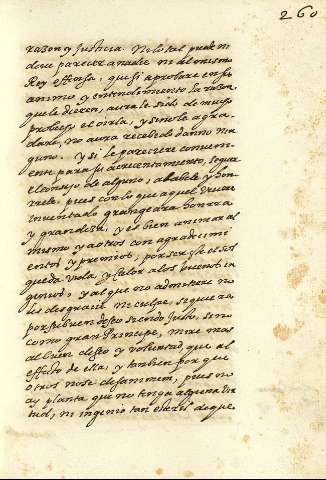 260
razon y Justicia. Ni lo tal puede ni
deve parecer a nadie ni al mismo
Rey offensa, que si aprobare en su
animo y entendimiento la razon
que le dieren, aura le sido de mucho
provecho el oirla, y si no le agra
dare, no aura recebido danno nin
guno. Y si le pareciere conveni
ente para su acrecentamiento, seguir
el consejo de alguno, alabele y hon
rrele, pues con lo que aquel huviere
inventado grangeara honrra
y grandeza, y es bien animar al
mismo y a otros con agradecimi
entos y premios, por ser esto el sol
que da vida, y calor a los buenos in
genios, y al que no admitiere no
les desgracie ni culpe, siquiera
por su buen deseo siendo Justo, sino
como gran Principe, mire mas
al buen deseo y voluntad, que al
effecto de ella, y tambien por que
otros no se desanimen, pues no
ay planta que no tenga alguna vir
tud, ni ingenio tan esteril de que